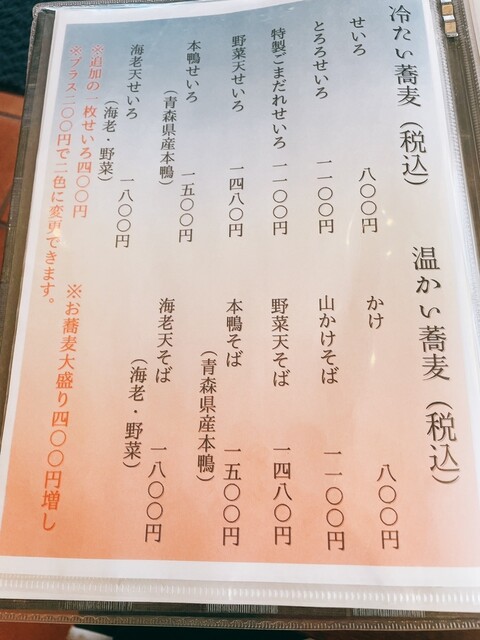 冷たい蕎麦（税込）
せいろ 八〇〇円
とろろせいろ 一一〇〇円
特製ごまだれせいろ 一一〇〇円
野菜天せいろ 一四八〇円
本鴨せいろ 一五〇〇円
（青森県産本鴨）
海老天せいろ 一八〇〇円
（海老・野菜）
※追加の一枚せいろ四〇〇円
※プラス二〇〇円で二色に変更できます。
温かい蕎麦（税込）
かけ 八〇〇円
山かけそば 一一〇〇円
野菜天そば 一四八〇円
本鴨そば 一五〇〇円
（青森県産本鴨）
海老天そば 一八〇〇円
（海老・野菜）
※お蕎麦大盛り四〇〇円増し